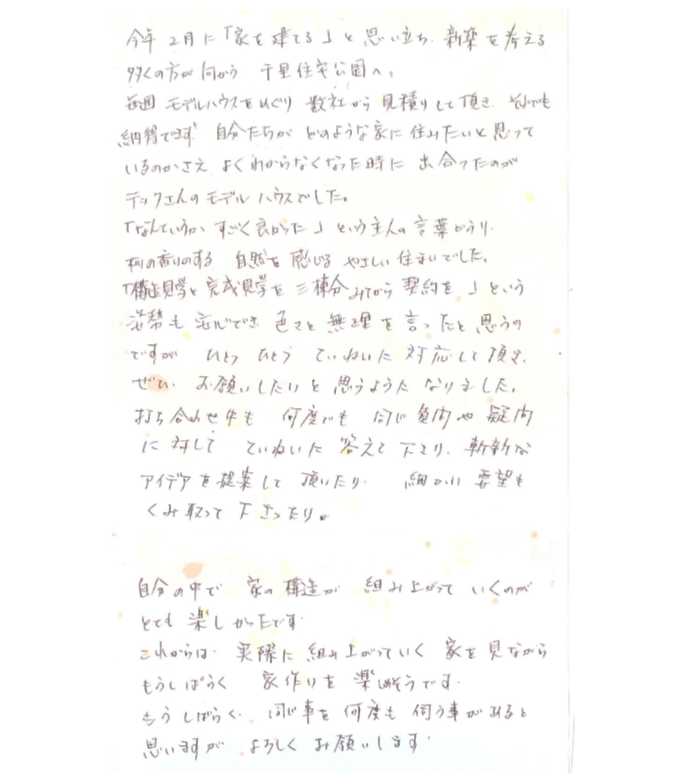 今年 2月に「家を建てる」と思い立ち、新築を考える
多くの方が向かう 千里住宅公園へ、
毎週 モデルハウスをめぐり 数社から見積りして頂き、それでも
納得できず 自分たちが どのような家に住みたいと思って
いるのかさえ よくわからなくなった時に 出合ったのが
デックさんのモデルハウスでした。
「なんていうか すごく良かった」という主人の言葉どうり、
木の香りのする 自然を感じる やさしい住まいでした。
「構造見学と完成見学を三棟分みてから 契約を」という
姿勢も 安心でき 色々と無理を言ったと思うの
ですが ひとつ ひとつ ていねいに 対応して頂き、
ぜひ お願いしたいと思うように なりました。
打ち合わせ中も 何度でも 同じ質問や疑問
に対して ていねいに 答えて下さり、斬新な
アイデアを提案して 頂いたり、 細かい要望も
くみ取って 下さったり。
自分の中で 家の構造が 組み上がって いくのが
とても楽しかったです。
これからは、実際に組み上がっていく 家を見ながら
もうしばらく 家作りを楽しめそうです。
もうしばらく、同じ事を何度も 伺う事があると
思いますが よろしく お願いします。